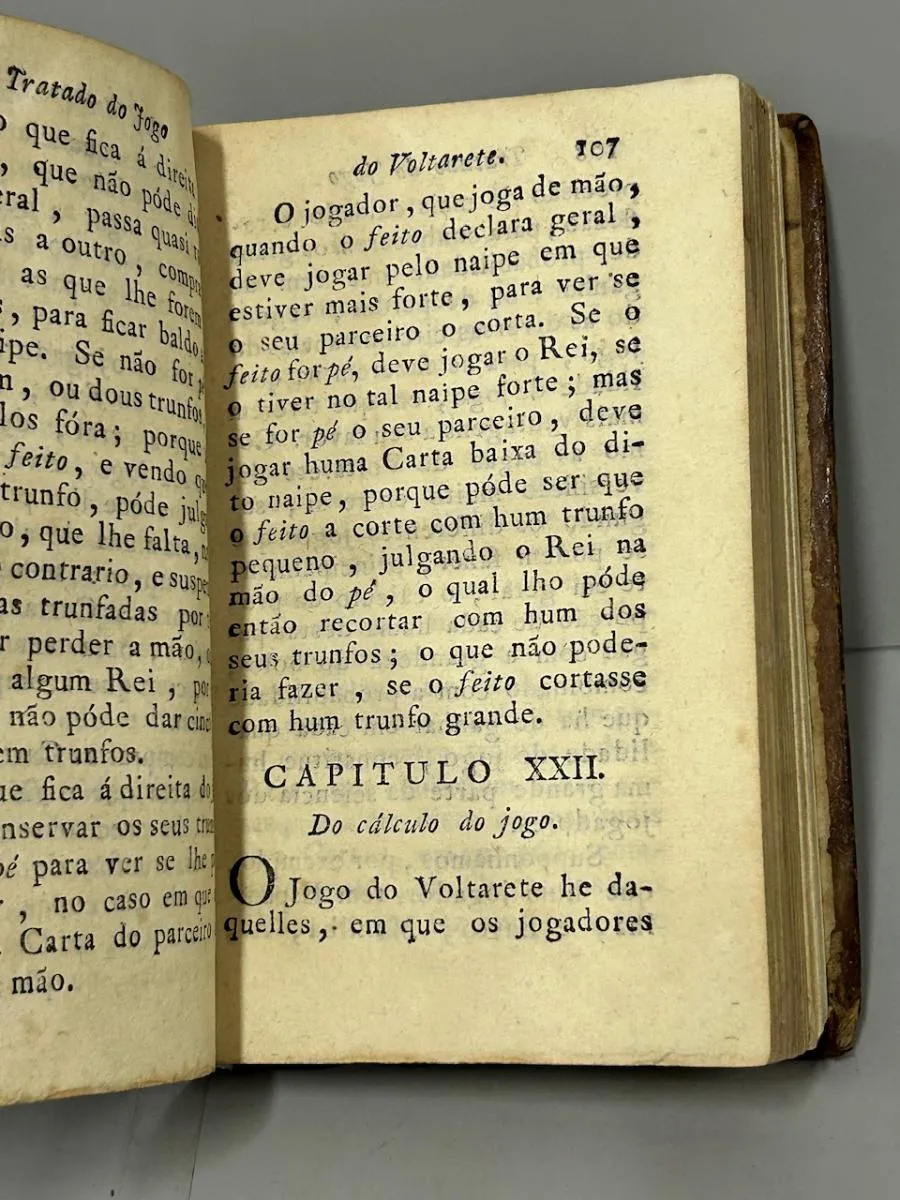 Tratado do Jogo
que fica á direita
, que não póde
eral , passa quasi
s a outro ,
as que lhe forem
, para ficar baldo
ipe. Se não for
, ou dous trunfos
los fóra ; porque
feito , e vendo
trunfo , póde
o , que lhe falta ,
contrario , e
as trunfadas por
r perder a mão ,
algum Rei ,
não póde dar
em trunfos.
ue fica á direita
nservar os seus
pé para ver se lhe
, no caso em que
Carta do parceiro
mão.
do Voltarete. 107
O jogador , que joga de mão ,
quando o feito declara geral ,
deve jogar pelo naipe em que
estiver mais forte , para ver se
o seu parceiro o corta. Se o
feito for pé, deve jogar o Rei, se
o tiver no tal naipe forte ; mas
se for pé o seu parceiro , deve
jogar huma Carta baixa do di-
to naipe, porque póde ser que
o feito a corte com hum trunfo
pequeno , julgando o Rei na
mão do pé , o qual lho póde
então recortar com hum dos
seus trunfos ; o que não pode-
ria fazer , se o feito cortasse
com hum trunfo grande.
CAPITULO XXII.
Do cálculo do jogo.
O Jogo do Voltarete he da-
quelles , em que os jogadores